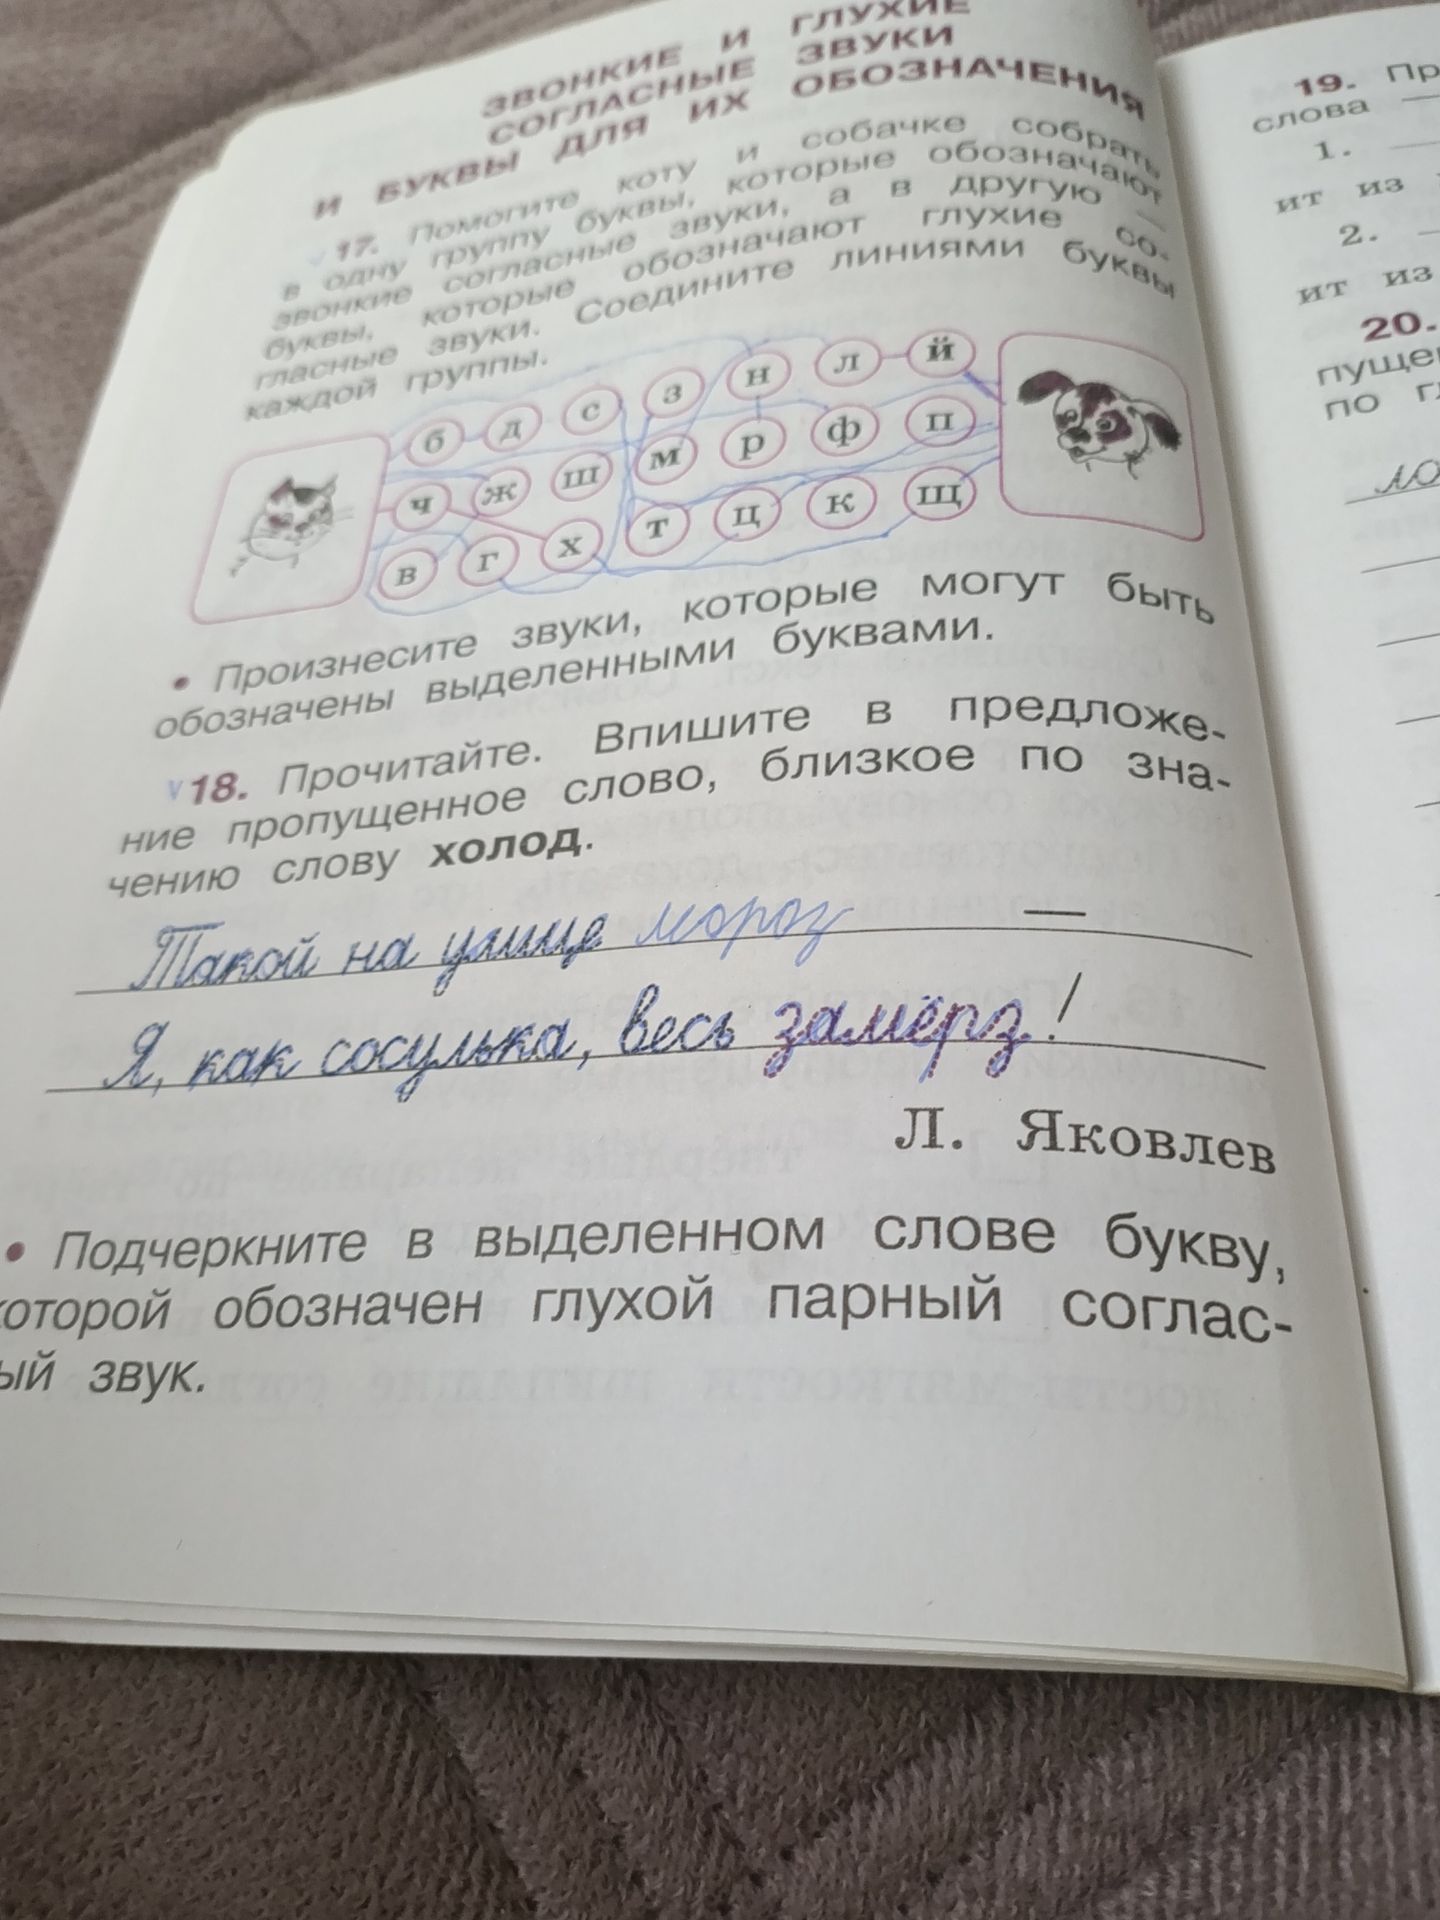 ЗВОНКИЕ И ГЛУХИЕ
СОГЛАСНЫЕ ЗВУКИ
И БУКВЫ ДЛЯ ИХ ОБОЗНАЧЕНИЯ
17. Помогите коту и собачке собрать
в одну группу буквы, которые обозначают
звонкие согласные звуки, а в другую —
буквы, которые обозначают глухие со-
гласные звуки. Соедините линиями буквы
каждой группы.
б д с з н л й
ч ж ш м р ф п
в г х т ц к щ
• Произнесите звуки, которые могут быть
обозначены выделенными буквами.
v 18. Прочитайте. Впишите в предложе-
ние пропущенное слово, близкое по зна-
чению слову холод.
Такой на улице мороз —
Я, как сосулька, весь замёрз!
Л. Яковлев
• Подчеркните в выделенном слове букву,
которой обозначен глухой парный соглас-
ый звук.
19. Пр
слова —
1. —
ит из
2. —
ит из
20.
пуще
по г